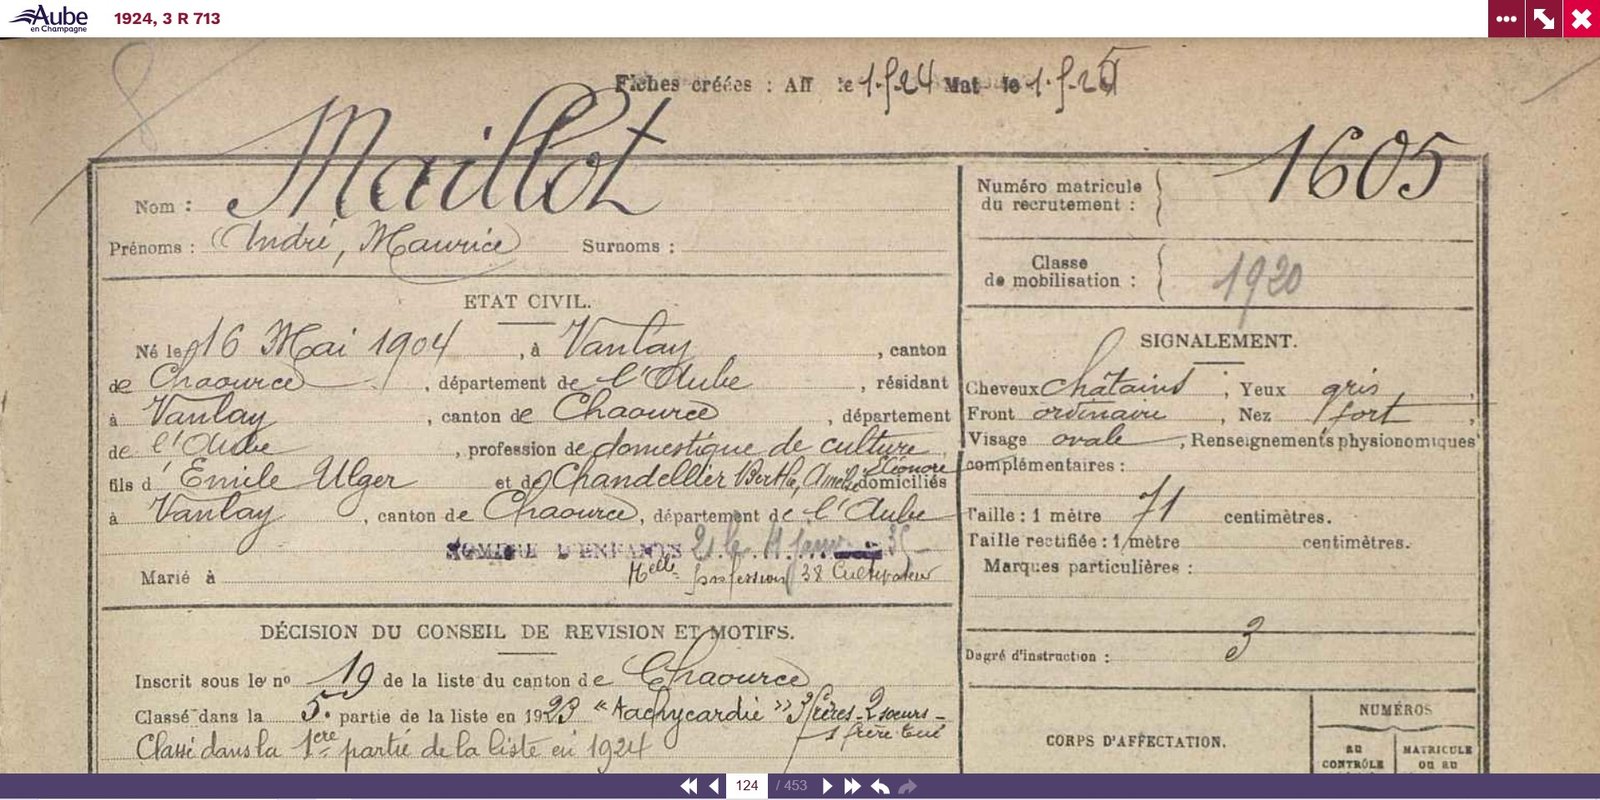 Aube
en Champagne
1924, 3 R 713
Fiches créées : Aff le 1.9.24 Mat le 1.9.25
Maillot
Nom :
Prénoms : André, Maurice Surnoms :
ETAT CIVIL.
Né le 16 Mai 1904, à Vanlay, canton
de Chaource, département de l'Aube, résidant
à Vanlay, canton de Chaource, département
de l'Aube, profession de domestique de culture
fils d'Emile Ulger et de Chandellier Berthe, Eléonore domiciliés
à Vanlay, canton de Chaource, département de l'Aube
NOMBRE D'ENFANTS 2 35
Marié à
Nelle profession 38 Cultivateur
DÉCISION DU CONSEIL DE REVISION ET MOTIFS.
Inscrit sous le nº 19 de la liste du canton de Chaource
Classé dans la 5. partie de la liste en 1923 "Tachycardie" 3 frères - 2 soeurs -
1 frère tué
Classé dans la 1ère partie de la liste en 1924
Numéro matricule
du recrutement :
1605
Classe
de mobilisation :
1920
SIGNALEMENT.
Cheveux châtains, Yeux gris,
Front ordinaire, Nez fort,
Visage ovale, Renseignements physionomiques
complémentaires :
Taille : 1 mètre 71 centimètres.
Taille rectifiée : 1 mètre centimètres.
Marques particulières :
Degré d'instruction : 3
CORPS D'AFFECTATION.
NUMÉROS
AU
CONTRÔLE
MATRICULE
OU AU
124 / 453